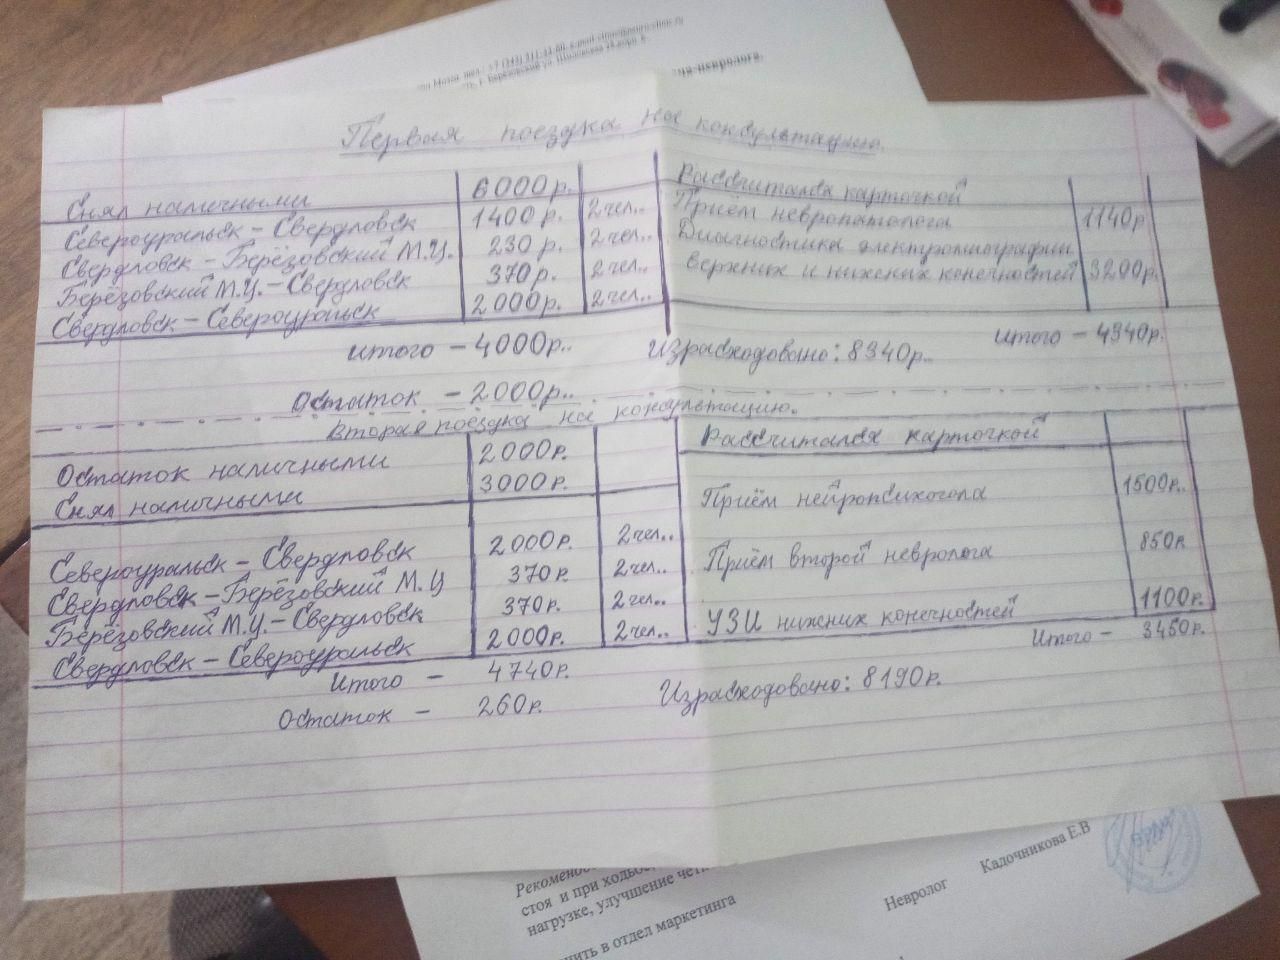 тел.: +7 (343) 311-33-80, e-mail:
г. Берёзовский ул.
невролога.
Первая поездка на консультацию.
Снял наличными 6000р.
Североуральск - Свердловск 1400р. 2чел..
Свердловск - Берёзовский М.Ц. 230р. 2чел..
Берёзовский М.Ц. - Свердловск 370р. 2чел..
Свердловск - Североуральск 2000р. 2чел..
Итого - 4000р..
Остаток - 2000р..
Рассчитался карточкой
Приём невропатолога 1140р
Диагностика электромиографии
верхних и нижних конечностей 3200р.
Итого - 4340р.
Израсходовано: 8340р..
Вторая поездка на консультацию.
Остаток наличными 2000р.
Снял наличными 3000р.
Североуральск - Свердловск 2000р. 2чел..
Свердловск - Берёзовский М.Ц 370р. 2чел..
Берёзовский М.Ц. - Свердловск 370р. 2чел..
Свердловск - Североуральск 2000р. 2чел..
Итого - 4740р.
Остаток - 260р.
Рассчитался карточкой
Приём нейропсихогола 1500р..
Приём второй невролога 850р
УЗИ нижних конечностей 1100р.
Итого - 3450р.
Израсходовано: 8190р.
стоя и при ходьбе,
нагрузке, улучшение
в отдел маркетинга
Невролог Кадочникова Е.В